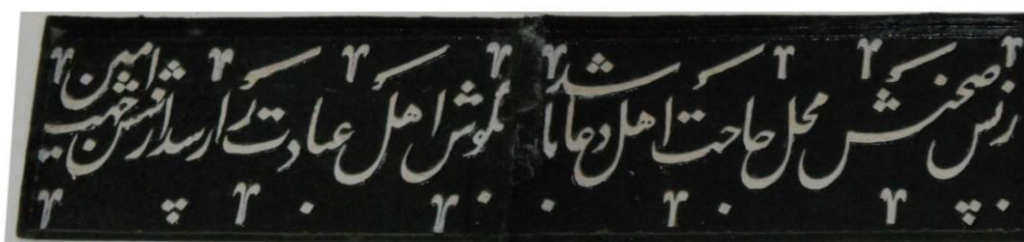 زبس صحنش محل حاجت اهل دعا باشد بگوش اهل عبادت را رسد از شش جهت امین